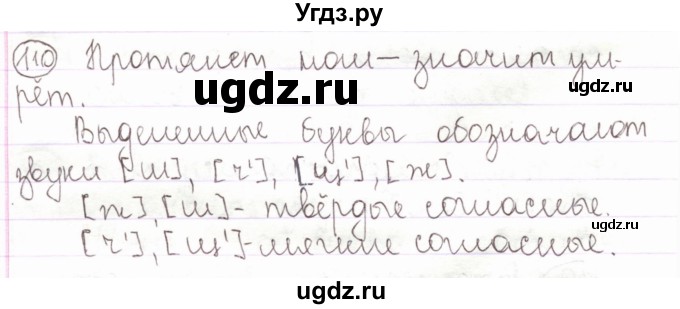 Угдз.ру
110 Протянет ноги — значит ум-
рёт.
Выделенные буквы обозначают
звуки [ш], [ч'], [щ'], [ж].
[ж], [ш] - твёрдые согласные.
[ч'], [щ'] - мягкие согласные.
ugdz.ru
ugdz.ru
ugdz.ru
ugdz.ru